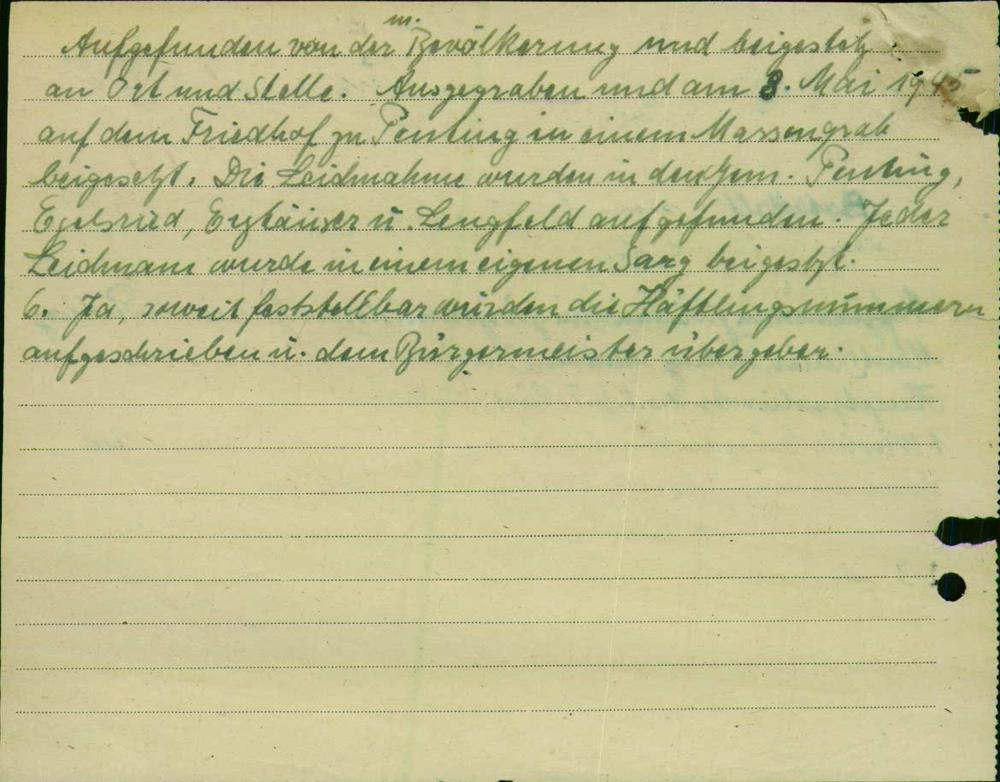 m.
Aufgefunden von der Bevölkerung und beigesetzt
an Ort und Stelle. Ausgegraben und am 8. Mai 1945
auf dem Friedhof zu Penting in einem Massengrab
beigesetzt. Die Leichname wurden in den Gem. Penting,
u. Lengfeld aufgefunden. Jeder
Leichnam wurde in einem eigenen Sarg beigesetzt.
6. Ja, soweit feststellbar wurden die Häftlingsnummern
aufgeschrieben u. dem Bürgermeister übergeben.